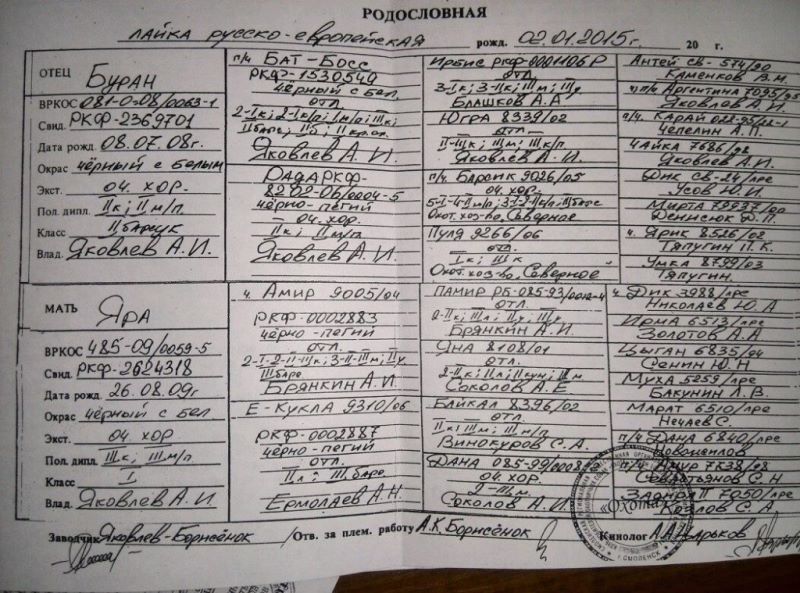 РОДОСЛОВНАЯ
ЛАЙКА русско-европейская рожд. 02.01.2015г. 20 г.
ОТЕЦ Буран
ВРКОС 081-0-08/0063-1
Свид. РКФ-2369701
Дата рожд. 08.07.08г.
Окрас чёрный с белым
Экст. оч. хор.
Пол. дипл. IIк; II м/п
Класс II барсук
Влад. Яковлев А.И.
п/ч БАТ-Босс
РКФ-1530549
чёрный с бел.
отл.
Яковлев А. И.
РАДА РКФ-
8202-06/0004-5
чёрно-пегий
оч. хор.
IIк; II м/п
Яковлев А. И.
Ирбис РКФ-0001106Р
отл.
Блашков А.А
Югра 8339/02
отл.
II-IIIк; IIIм; IIIк/п
Яковлев А. И.
п/ч Барсик 9026/05
оч. хор.
Охот. хоз-во Северное
Пуля 9266/06
отл.
Iк; IIIк
Охот. хоз-во Северное
Антей св-574/90
Каменков В.М.
Аргентина 7095/95
Яковлев А. И.
п/ч. Карай
Чепелин А. П.
Чайка 7686/98
Яковлев А. И.
Дик св-24/пре
Усов Ю. И
Мирта
Денисюк Д. П.
ч. Ярик 8526/02
Тяпугин П. К.
Умка 8799/03
Тяпугин.
МАТЬ Яра
ВРКОС 485-09/0059-5
Свид. РКФ-2624318
Дата рожд. 26.08.09г.
Окрас чёрный с бел
Экст. оч. хор
Пол. дипл. IIIк; III м/п
Класс I
Влад. Яковлев А. И.
ч. Амир 9005/04
РКФ-0002883
чёрно-пегий
отл.
III барс.
Брянкин А. И.
Е-Кукла 9310/06
РКФ-0002887
чёрно-пегий
отл.
IIл; III барс
Ермолаев А. Н.
ПАМИР РБ-085-93/0012-4
отл.
Брянкин А. И.
Яна 8108/01
отл.
Соколов А. Е
Байкал 8396/02
отл
Винокуров С. А.
Дана
оч. хор.
2-IIIм
Соколов А. И.
ч. Дик 3988/пре
Николаев Ю. А
Ирма 6513/пре
Золотов А. А
Цыган 6835/94
Сенин Ю. Н
Муха 5259/пре
Бакунин Л. В.
Марат 6510/пре
Нечаев С.
п/ч Дана 6840/пре
п/ч. Амур 7238/98
Севостьянов С. Н
7050/пре
Козлов С. А
Заводчик Яковлев-Борисёнок /Отв. за плем. работу А.К Борисёнок Кинолог
«Охота»
г. СМОЛЕНСК